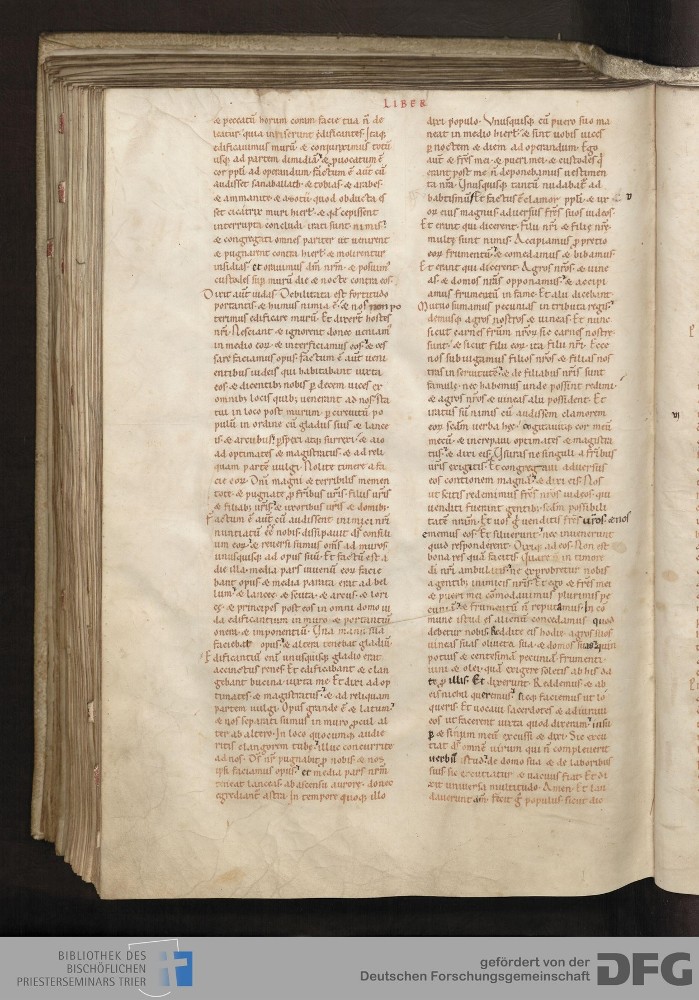 LIBER
& peccatū horum coram facie tua n̄ de
leatur. quia irriserunt ędificantes. Itaq;
ędificauimus murū. & coniunximus totū
usq; ad partem dimidiā. & puocatum ē
cor ppli ad operandum. factum ē aut cū
audisset sanaballath. & tobias. & arabes.
& ammanite & azotii. quod obducta ēs
set cicatrix muri hierłm. & qd cepissent
interrupta concludi. irati sunt nimis.
& congregati omnes pariter ut uenirent
& pugnarent contra hierłm. & molirentur
insidias. et orauimus dm̄ nrm̄. & posuim;
custodes sup murū die & nocte contra eos.
Dixit aut iudas. Debilitata est fortitudo
portantis. & humus nimia ē. & nos non po
terimus edificare murū. Et dixert hostes
nri. Nesciant & ignorent donec ueniam;
in medio eoꝝ. & interficiamus eos. & ces
sare faciamus opus. factum ē aut ueni
entibus iudeis qui habitabant iuxta
eos. & dicentib; nobis p decem uices ex
omnib; locis quib; uenerant ad nos. sta
tui in loco post murum p circuitū po
pulū in ordine cū gladiis suis & lance
is & arcubus. pspexi atq; surrexi. & aio
ad optimates & magistratus. & ad reli
quam partē uulgi. Nolite timere a fa
cie eoꝝ. Dnī magni & terribilis memen
tote. & pugnate p frībus urīs. filiis urīs
& filiab; urīs. & uxoribus urīs & domib;.
Factum ē aut cū audissent inimici nrī
nuntiatū eē nobis. dissipauit dś consili
um eoꝝ. & reuersi sumus om̄s ad muros.
unusquisq; ad opus suū. Et factū est a
die illa. media pars iuuenū eoꝝ facie
bant opus. & media parata erat ad bel
lum. & lanceę. & scuta. & arcus. & lori
cę. & principes post eos in omni domo iu
da edificantium in muro. & portantiū
onera. & imponentiū. Una manu sua
faciebat opus. & altera tenebat gladiū.
Edificantiū enī unusquisq; gladio erat
accinctus renes. Et edificabant & clan
gebant bucina iuxta me. Et dixi ad op
timates & magistratus. & ad reliquam
partem uulgi. Opus grande ē & latum.
& nos separati sumus in muro pcul al
ter ab altero. In loco quocumq; audie
ritis clangorem tubę. illuc concurrite
ad nos. Dś nr̄ pugnabit p nobis. & nos
ipsi faciamus opus. et media pars nrm̄
teneat lanceas ab ascensu aurorę. donec
egrediant astra. In tempore quoq; illo
dixi populo. Unusquisq; cū puero suo ma
neat in medio hierłm. & sint uobis uices
p noctem & diem ad operandum. Ego
aut & frēs mei. & pueri mei. & custodes q̄
erant post me n̄ deponebamus uestimen
ta nrā. Unusquisq; tantū nudabat ad
babtismū. Et factus ē clamor ppli. & ux
oꝝ eius magnus aduersus frēs suos iudeos.
Et erant qui dicerent. Filii nrī & filię nrē
multę sunt nimis. Accipiamus p pretio
eoꝝ frumentū. & comedamus & bibamus.
Et erant qui dicerent. Agros nrōs & uine
as & domos nrās opponamus. & accipi
amus frumentū in fame. Et alii dicebant.
Mutuo sumamus pecunias in tributa regis.
demusq; agros nostros & uineas. Et nunc
sicut carnes frūm nrōꝝ. sic carnes nostrę
sunt. & sicut filii eoꝝ. ita filii nrī. Ecce
nos subiugamus filios nrōs & filias nos
tras in seruitutē. & de filiabus nrīs sunt
famulę. nec habemus unde possint redimi.
& agros nrōs & uineas alii possident. Et
iratus sū nimis cū audissem clamorem
eoꝝ scdm uerba hęc. cogitauitq; cor meū
mecū. & increpaui optimates & magistra
tus. & dixi eis. Usuras ne singuli a frībus
urīs exigatis. Et congregaui aduersus
eos contionem magnā. & dixi eis. Nos
ut scitis redemimus frēs nrōs iudeos. qui
uenditi fuerant gentib; scdm possibili
tatē nram. Et uos g uenditi frēs uros. & nos
emem; eos. Et siluerunt. nec inuenerunt
quid responderent. Dixiq; ad eos. Non est
bona res quā facitis. Quare n̄ in timore
dī nrī ambulatis. ne exprobretur nobis
a gentib; inimicis nrīs. Et ego & frēs mei
& pueri mei comodauimus plurimis pe
cuniā & frumentū. n̄ reputamus. In cō
mune istud ęs alienū concedamus quod
debetur nobis. Reddite eis hodie agros suos
uineas suas oliueta sua. & domos suas. quin
potius & centesimā pecunię. frumenti.
uini. & olei. quā exigere soletis ab his da
te p illis. Et dixerunt. Reddemus. & ab
eis nichil queremus. sicq; faciemus ut lo
queris. Et uocaui sacerdotes & adiuraui
eos ut facerent iuxta quod dixeram. insu
p & sinum meū excussi & dixi. Sic excu
tiat dś omnē uirum qui n̄ compleuerit
uerbū istud. de domo sua & de laboribus
suis. sic excutiatur & uacuus fiat. Et di
xit uniuersa multitudo. Amen. Et lau
dauerunt dm̄. fecit g populus sicut dic
V
VI
BIBLIOTHEK DES
BISCHÖFLICHEN
PRIESTERSEMINARS TRIER
gefördert von der
Deutschen Forschungsgemeinschaft
DFG